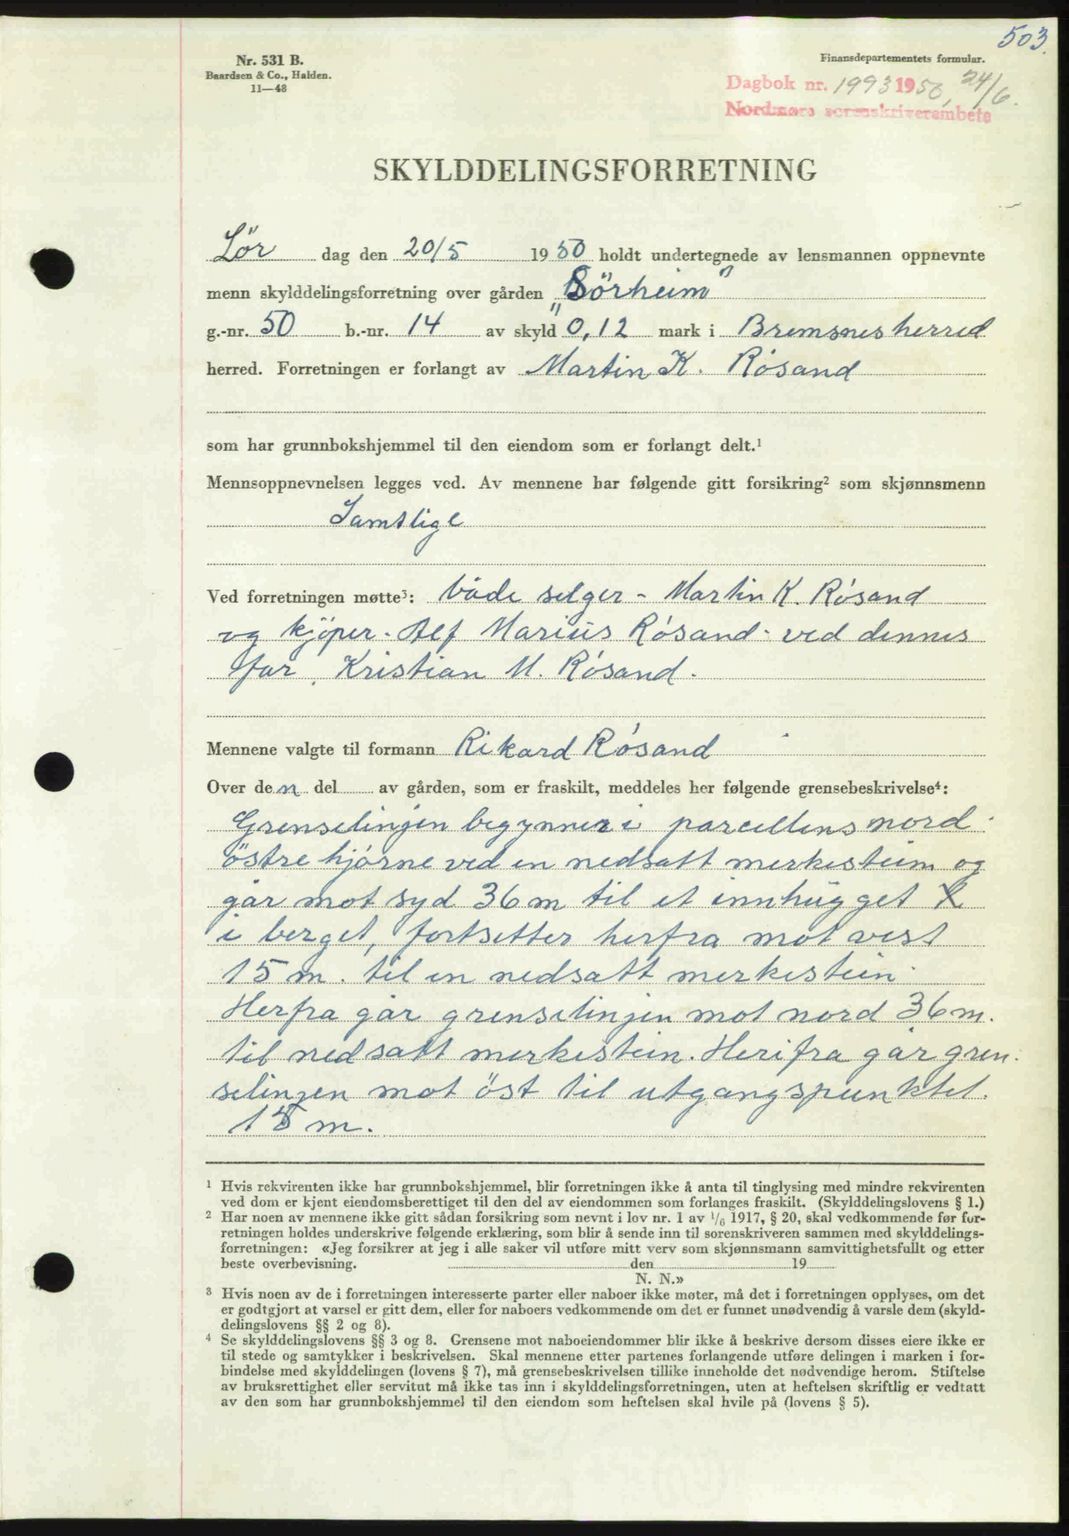 503.
Nr. 531 B.
Baardsen & Co., Halden.
11—48
Finansdepartementets formular.
Dagbok nr. 1993 1950, 24/6.
Nordmøre sorenskriverembete
SKYLDDELINGSFORRETNING
Lør dag den 20/5 1950 holdt undertegnede av lensmannen oppnevnte
menn skylddelingsforretning over gården „Sörheim"
g.-nr. 50 b.-nr. 14 av skyld 0,12 mark i Bremsnes herred
herred. Forretningen er forlangt av Martin K. Røsand
som har grunnbokshjemmel til den eiendom som er forlangt delt.¹
Mennsoppnevnelsen legges ved. Av mennene har følgende gitt forsikring² som skjønnsmenn
Samtlige
Ved forretningen møtte³: både selger - Martin K. Røsand
og kjöper - Alf Marius Røsand - ved dennes
far, Kristian M. Røsand.
Mennene valgte til formann Rikard Røsand
Over den del av gården, som er fraskilt, meddeles her følgende grensebeskrivelse⁴:
Grenselinjen begynner i parcellens nord-
östre hjørne ved en nedsatt merkestein og
går mot syd 36 m til et innhugget X
i berget, fortsetter herfra mot vest
15 m. til en nedsatt merkestein.
Herfra går grenselinjen mot nord 36 m.
til nedsatt merkestein. Herifra går gren-
selinjen mot öst til utgangspunktet.
15 m.
¹ Hvis rekvirenten ikke har grunnbokshjemmel, blir forretningen ikke å anta til tinglysing med mindre rekvirenten
ved dom er kjent eiendomsberettiget til den del av eiendommen som forlanges fraskilt. (Skylddelingslovens § 1.)
² Har noen av mennene ikke gitt sådan forsikring som nevnt i lov nr. 1 av 1/6 1917, § 20, skal vedkommende før for-
retningen holdes underskrive følgende erklæring, som blir å sende inn til sorenskriveren sammen med skylddelings-
forretningen: «Jeg forsikrer at jeg i alle saker vil utføre mitt verv som skjønnsmann samvittighetsfullt og etter
beste overbevisning. den 19
N. N.»
³ Hvis noen av de i forretningen interesserte parter eller naboer ikke møter, må det i forretningen opplyses, om det
er godtgjort at varsel er gitt dem, eller for naboers vedkommende om det er funnet unødvendig å varsle dem (skyld-
delingslovens §§ 2 og 8).
⁴ Se skylddelingslovens §§ 3 og 8. Grensene mot naboeiendommer blir ikke å beskrive dersom disses eiere ikke er
til stede og samtykker i beskrivelsen. Skal mennene etter partenes forlangende utføre delingen i marken i for-
bindelse med skylddelingen (lovens § 7), må grensebeskrivelsen tillike inneholde det nødvendige herom. Stiftelse
av bruksrettighet eller servitut må ikke tas inn i skylddelingsforretningen, uten at heftelsen skriftlig er vedtatt
av den som har grunnbokshjemmel til den eiendom som heftelsen skal hvile på (lovens § 5).